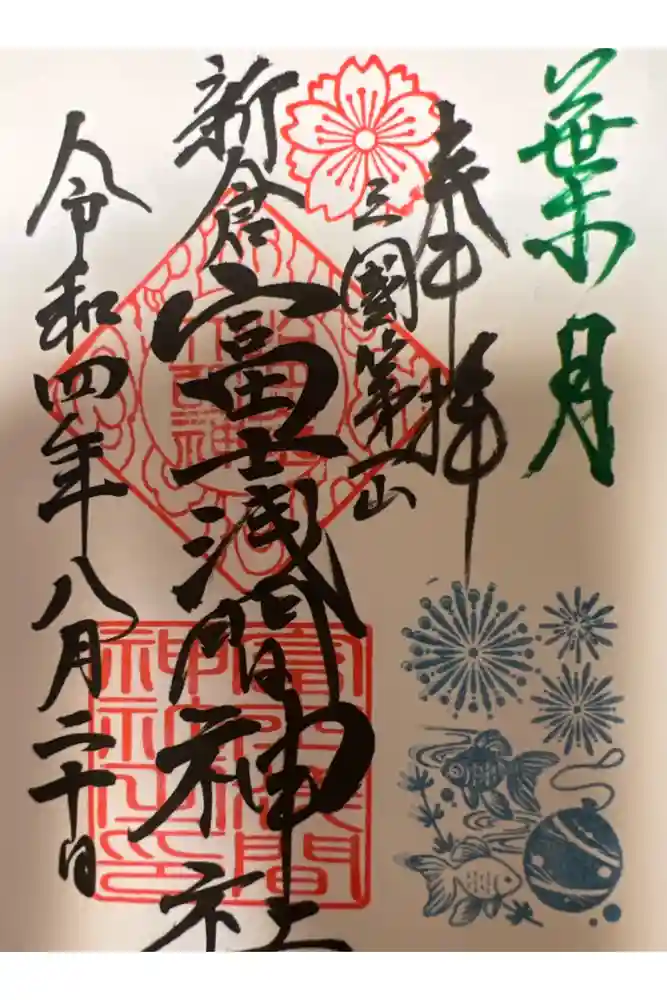 葉月
奉拝
三國第一山
新倉富士浅間神社
令和四年八月二十日